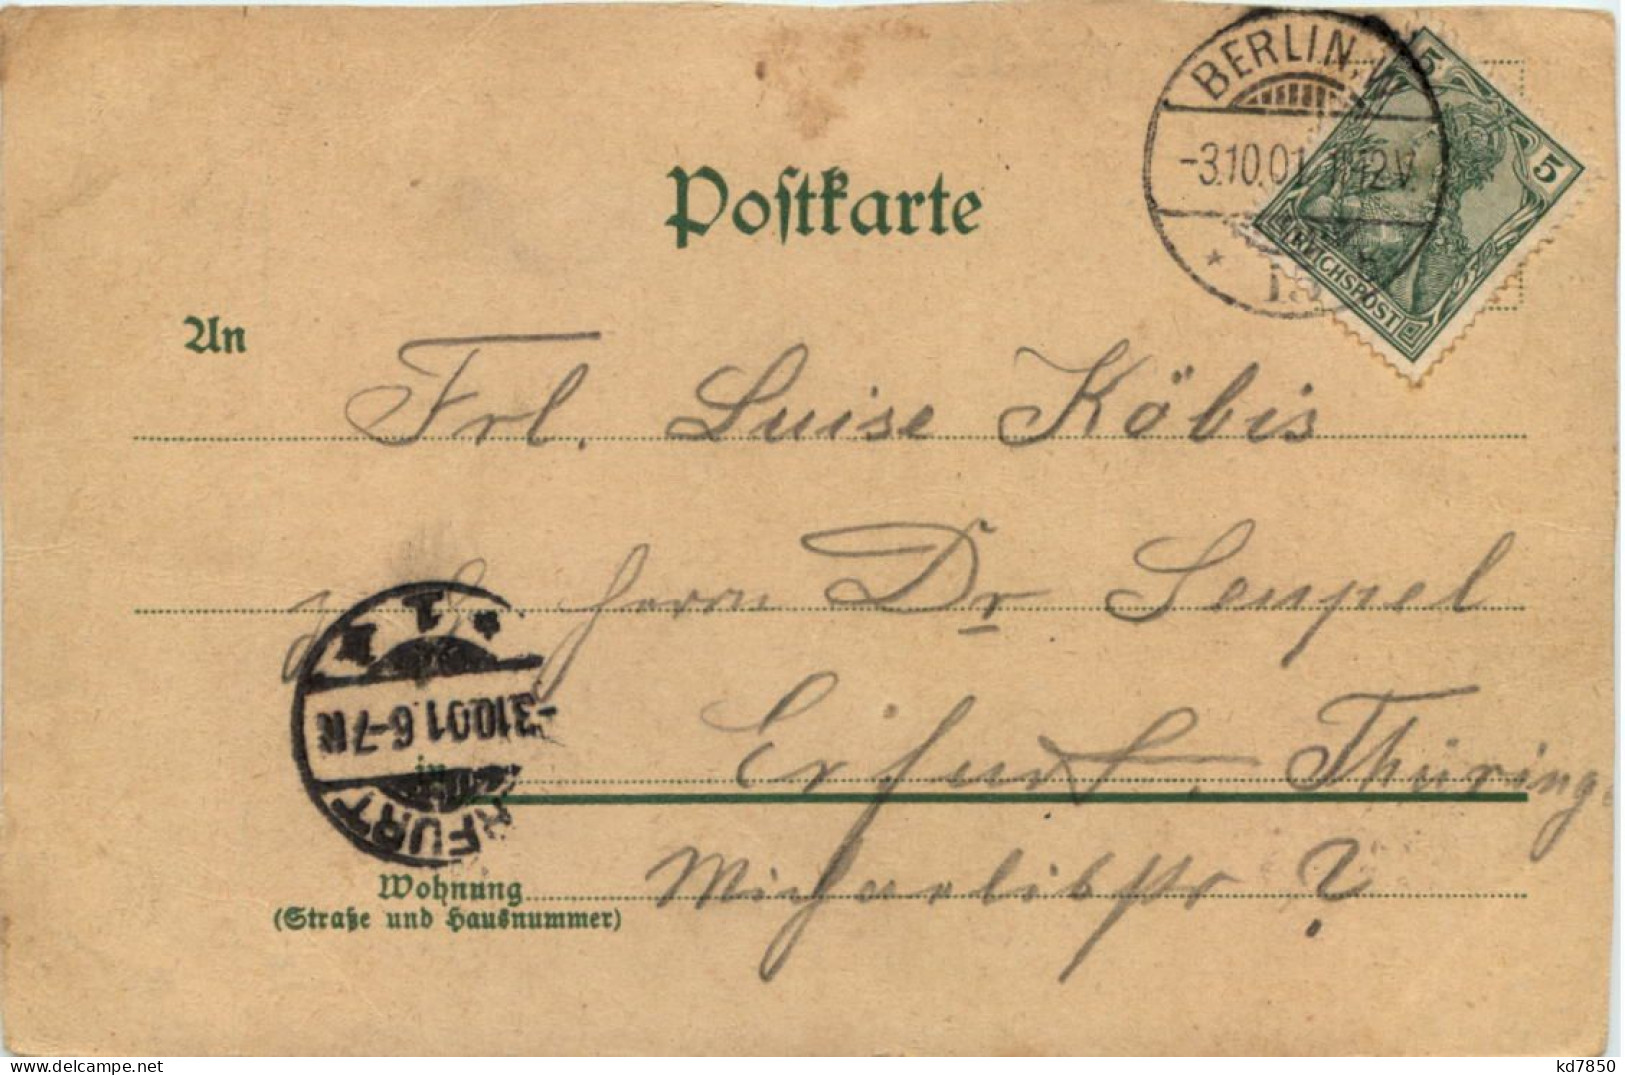 BERLIN, W.
-3.10.01. 11-12 V.
5
5
REICHSPOST
Postkarte
An
Frl. Luise Köbis
Herrn Dr Sempel
* 1 *
-3.10.01. 6-7 N
ERFURT
in Erfurt, Thüring
Wohnung
(Straße und Hausnummer)
Michaelisstr ?
kd7850